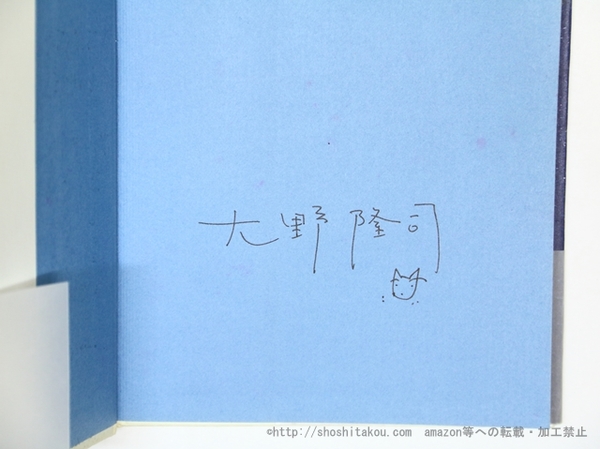 大野隆司
©http://shoshitakou.com amazon等への転載・加工禁止